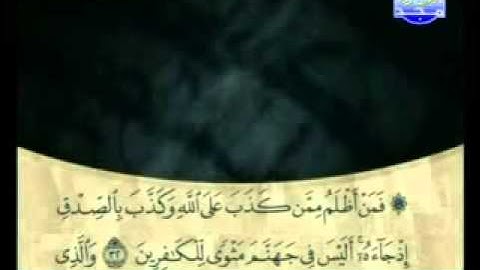 ۞ فَمَنْ أَظْلَمُ مِمَّن كَذَبَ عَلَى ٱللَّهِ وَكَذَّبَ بِٱلصِّدْقِ
إِذْ جَآءَهُۥٓ ۚ أَلَيْسَ فِى جَهَنَّمَ مَثْوًى لِّلْكَـٰفِرِينَ ٣٢ وَٱلَّذِى